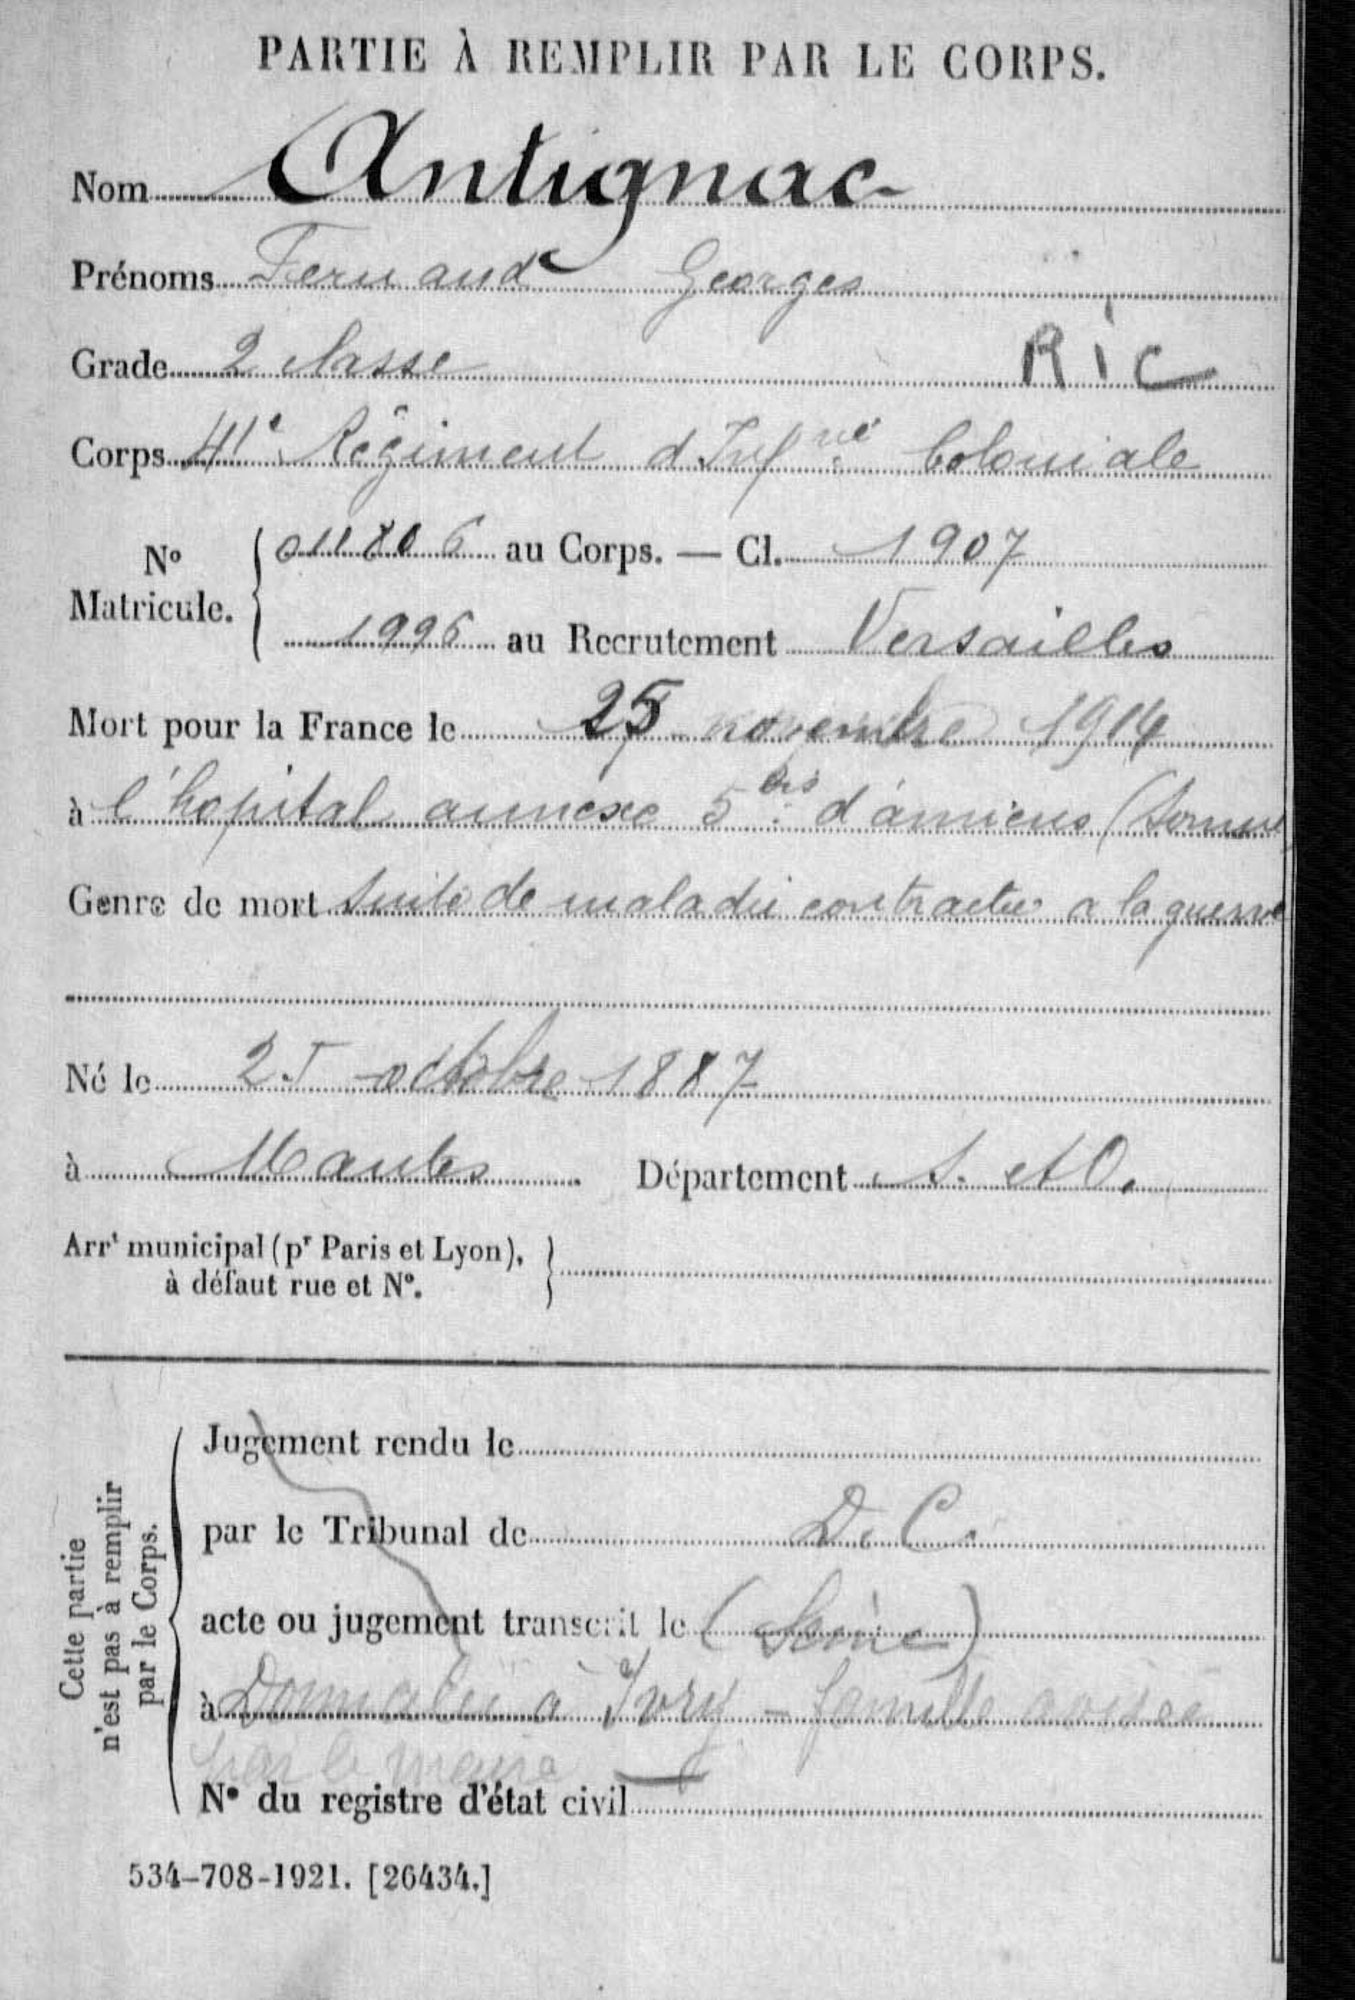 PARTIE À REMPLIR PAR LE CORPS.
Nom Antignac
Prénoms Fernand Georges
Grade 2 classe
RIC
Corps 41e Régiment d'Infrie Coloniale
No Matricule. 011806 au Corps. — Cl. 1907
1996 au Recrutement Versailles
Mort pour la France le 25 novembre 1914
à l'hopital annexe 5 bis d'amiens (Somme
Genre de mort Suite de maladie contractée a la guerre
Né le 25 octobre 1887
à Mantes Département S. et O.
Arrt municipal (pr Paris et Lyon),
à défaut rue et No.
Cette partie
n'est pas à remplir
par le Corps.
Jugement rendu le
par le Tribunal de D. C.
acte ou jugement transcrit le (Seine)
à Domicilié à Ivry – famille avisée
par le maire
No du registre d'état civil
534-708-1921. [26434.]